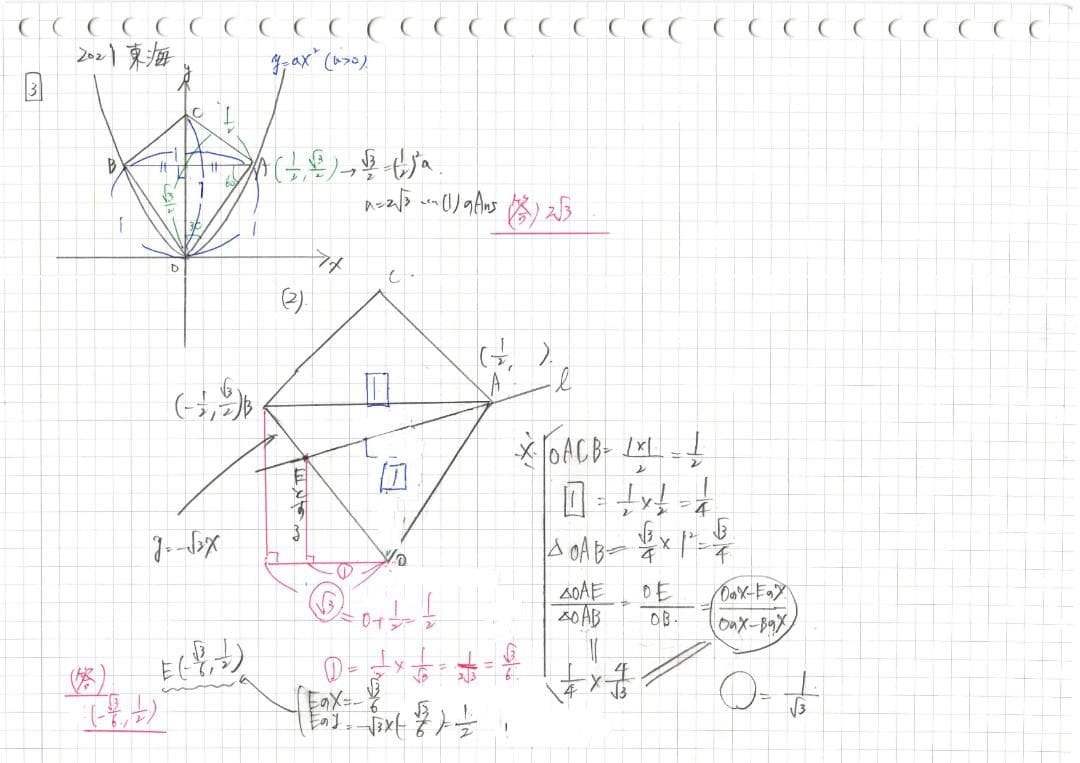 2021 東海
3
y=ax² (a>0)
y
C
1/2
B
1
A (1/2, √3/2) → √3/2 = (1/2)² a
60
√3/2
1
a=2√3 … (1) のAns
(答) 2√3
1
30
1
O
x
(2)
C
(1/2, )
A
l
(-1/2, √3/2) B
1
1
Eとする
y=-√3x
O
①
√3
= 0+1/2 = 1/2
① = 1/2 × 1/√3 = 1/2√3 = √3/6
E(-√3/6, 1/2)
EのX = -√3/6
EのY = -√3×(-√3/6) = 1/2
(答)
(-√3/6, 1/2)
※ OACB = 1×1/2 = 1/2
1 = 1/2 × 1/2 = 1/4
△OAB = √3/4 × 1² = √3/4
△OAE/△OAB = OE/OB = OのX-EのX/OのX-BのX
=
1/4 × 4/√3
○ = 1/√3